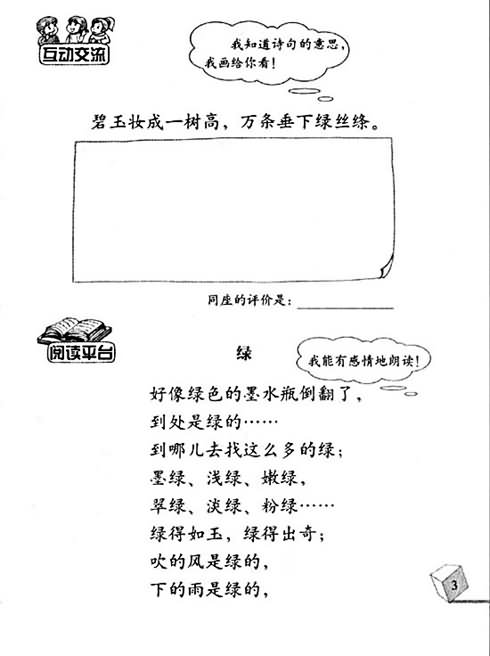 互动交流
我知道诗句的意思，
我画给你看！
碧玉妆成一树高，万条垂下绿丝绦。
同座的评价是：
阅读平台
绿
我能有感情地朗读！
好像绿色的墨水瓶倒翻了，
到处是绿的……
到哪儿去找这么多的绿；
墨绿、浅绿、嫩绿，
翠绿、淡绿、粉绿……
绿得如玉，绿得出奇；
吹的风是绿的，
下的雨是绿的，
3